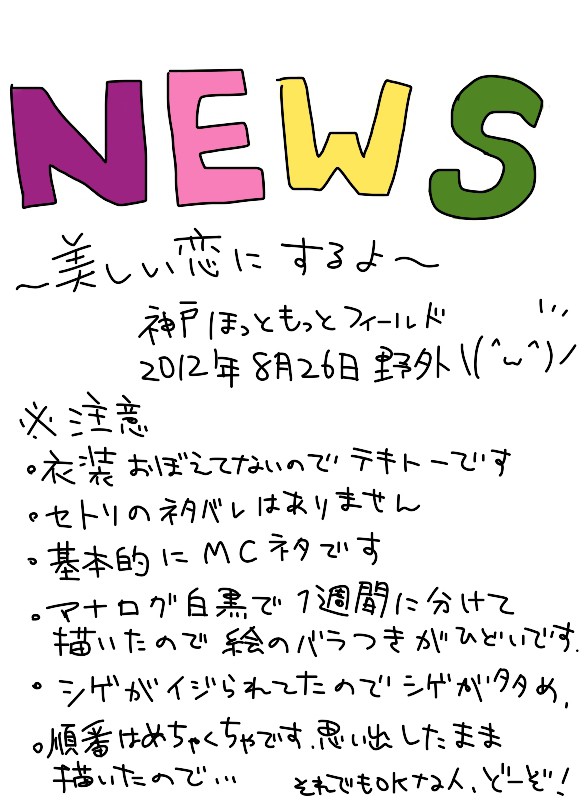 NEWS
～美しい恋にするよ～
神戸ほっともっとフィールド
2012年8月26日 野外 \(^ω^)/
※注意
。衣装おぼえてないのでテキトーです
・セトリのネタバレはありません
・基本的にMCネタです
。アナログ白黒で1週間に分けて
描いたので絵のバラつきがひどいです.
・シゲがイジられてたのでシゲが多め,
。順番はめちゃくちゃです.思い出したまま
描いたので…
それでもOKな人、どーぞ!